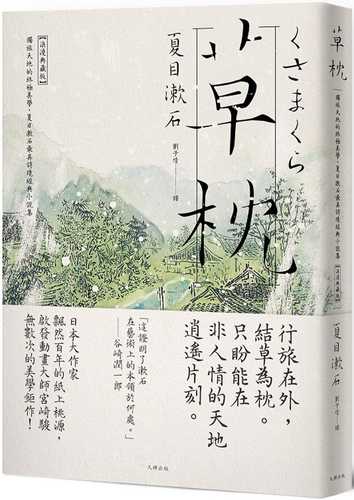 くさまくら
草枕
夏目漱石
劉子倩 譯
【浪漫典藏版】
獨旅天地的終極美學，夏目漱石最具詩境經典小說集
行旅在外，
結草為枕。
只盼能在
非人情的天地
逍遙片刻。
「這證明了漱石
在藝術上的本領於何處。」
——谷崎潤一郎
日本大作家
飄然百年的紙上桃源，
啟發動畫大師宮崎駿
無數次的美學鉅作！
大牌出版
草枕
獨旅天地的終極美學，夏目漱石最具詩境經典小說集
【浪漫典藏版】
夏目漱石
劉子倩 譯
大牌出版